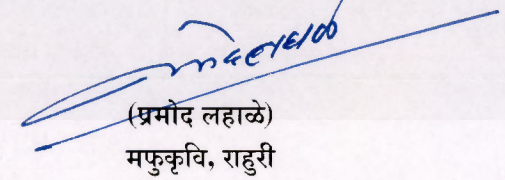 (प्रमोद लहाळे)
मफुकृवि, राहुरी